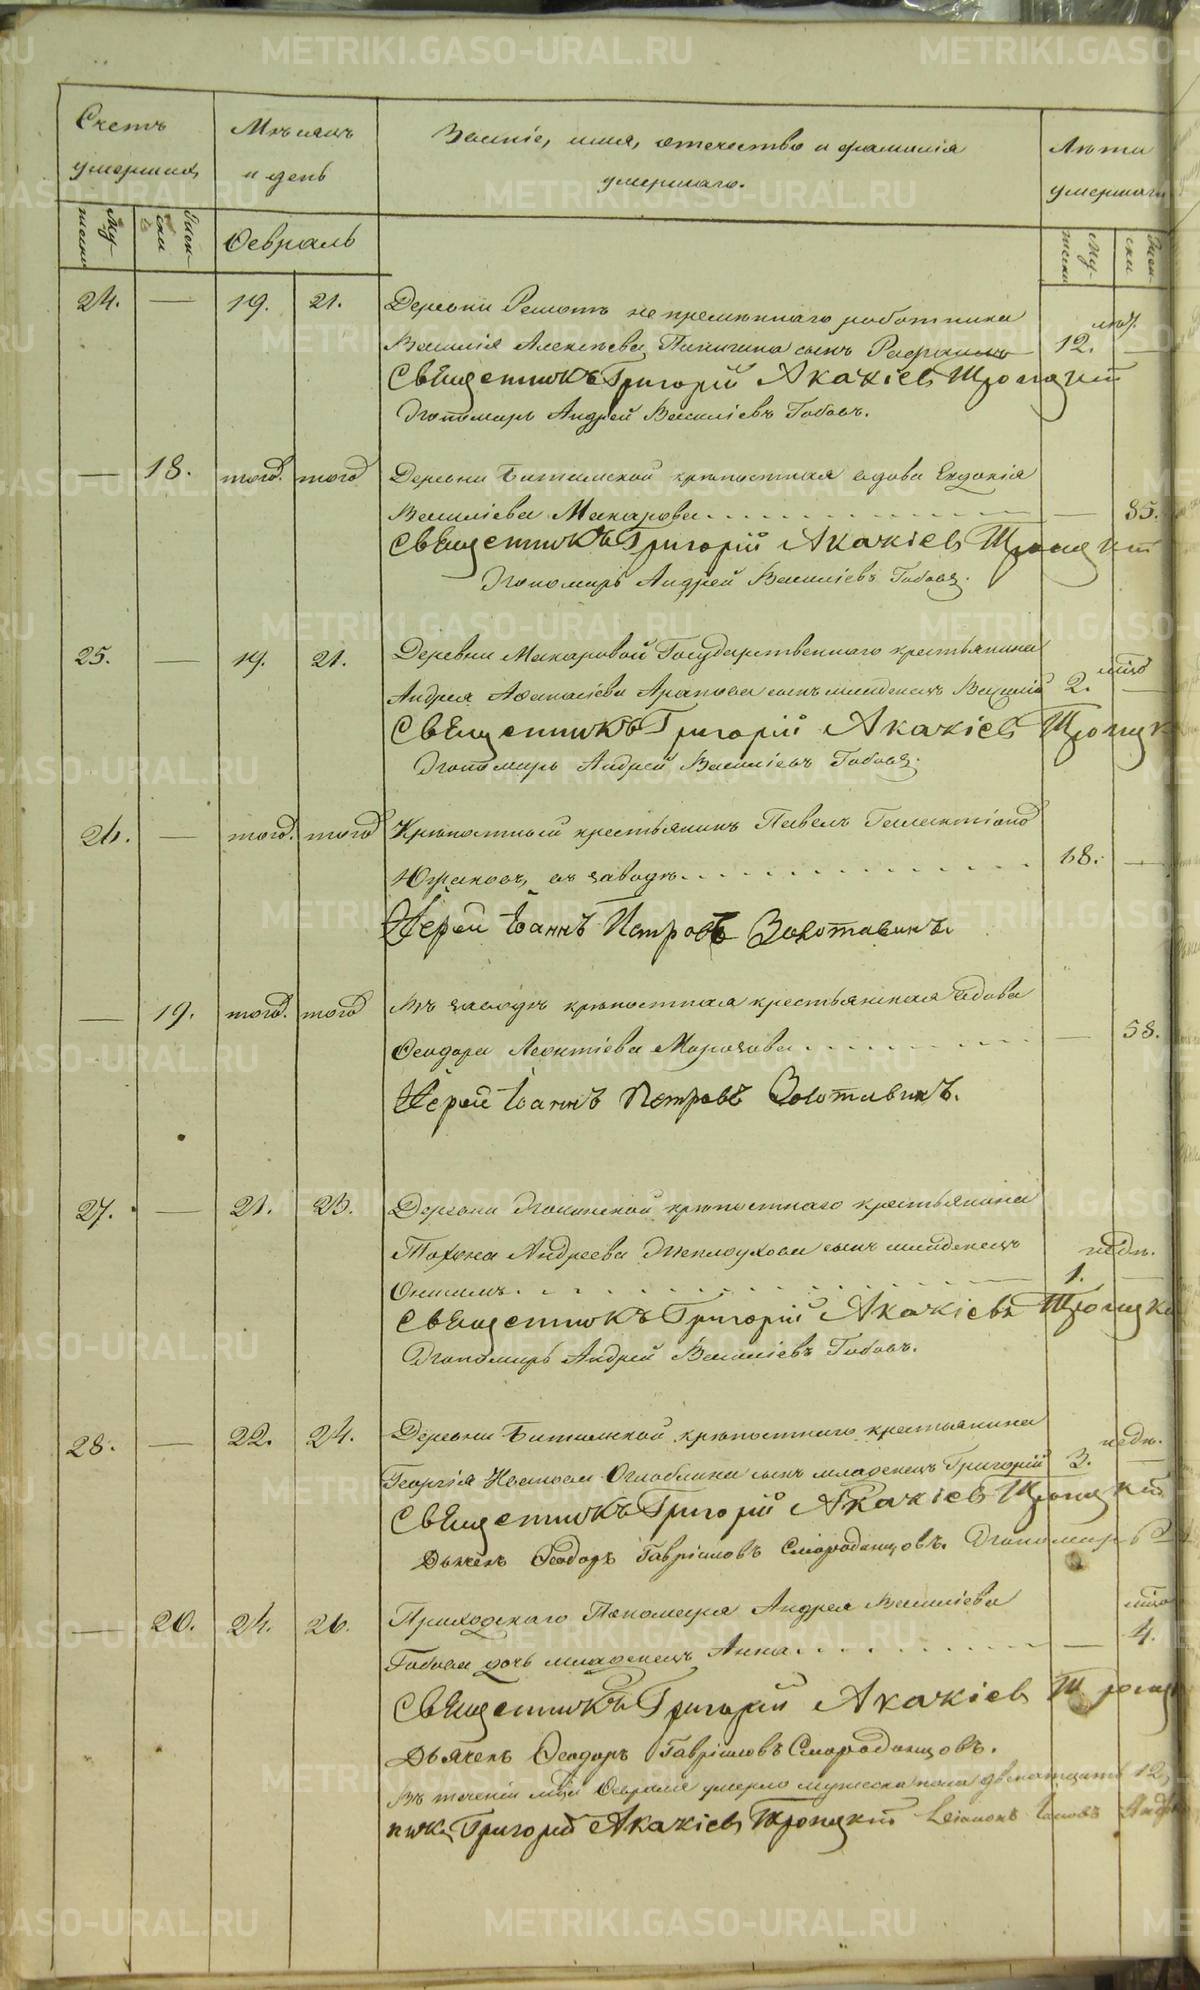 METRIKI.GASO-URAL.RU
Счетъ умершихъ
Мѣсяцъ и день
Званіе, имя, отечество и фамилія умершаго.
Лѣта умершаго
Мужеска
Женски
Февраль
Мужеска
Женски
24. — 19. 21. Деревни Ремотъ непремѣннаго работника
Василія Алексѣева Пичугина сынъ 12. —
Священникъ Григорій Акакіевъ Троицкій
Пономарь Андрей Василіевъ Бабовъ.
— 18. того того Деревни Битимской крѣпостная вдова Евдокія
Василіева Макарова — 85.
Священникъ Григорій Акакіевъ Троицкій
Пономарь Андрей Василіевъ Бабовъ.
25. — 19. 21. Деревни Макаровой Государственнаго крестьянина
Андрея Аѳанасіева Арапова сынъ младенецъ Василій 2. —
Священникъ Григорій Акакіевъ Троицк
Пономарь Андрей Василіевъ Бабовъ.
26. — того. того Крѣпостный крестьянинъ Павелъ
Южаковъ, въ заводѣ 18. —
Іерей Іоаннъ Петровъ Золотавинъ.
— 19. того. того Въ заводѣ крѣпостная крестьянская вдова
Ѳеодора Леонтіева Морозова — 58.
Іерей Іоаннъ Петровъ Золотавинъ.
27. — 21. 23. Деревни крѣпостнаго крестьянина
Андреева сынъ младенецъ недѣ.
Онисимъ 1. —
Священникъ Григорій Акакіевъ Троицкі
Пономарь Андрей Василіевъ Бабовъ.
28. — 22. 24. Деревни Битимской крѣпостнаго крестьянина недѣ.
Георгія Иванова Оглоблина сынъ младенецъ Григорій 3. —
Священникъ Григорій Акакіевъ Троицкій
Дьячекъ Ѳеодоръ Гавріиловъ Смородинцовъ. Пономарь
— 20. 24. 26. Приходскаго Пономаря Андрея Василіева
Бабова дочь младенецъ Анна — 4.
Священникъ Григорій Акакіевъ Троицк
Дьячекъ Ѳеодоръ Гавріиловъ Смородинцовъ.
Въ теченіи Февраля умерло мужеска пола двенатцать 12,
никъ Григорій Акакіевъ Троицкій